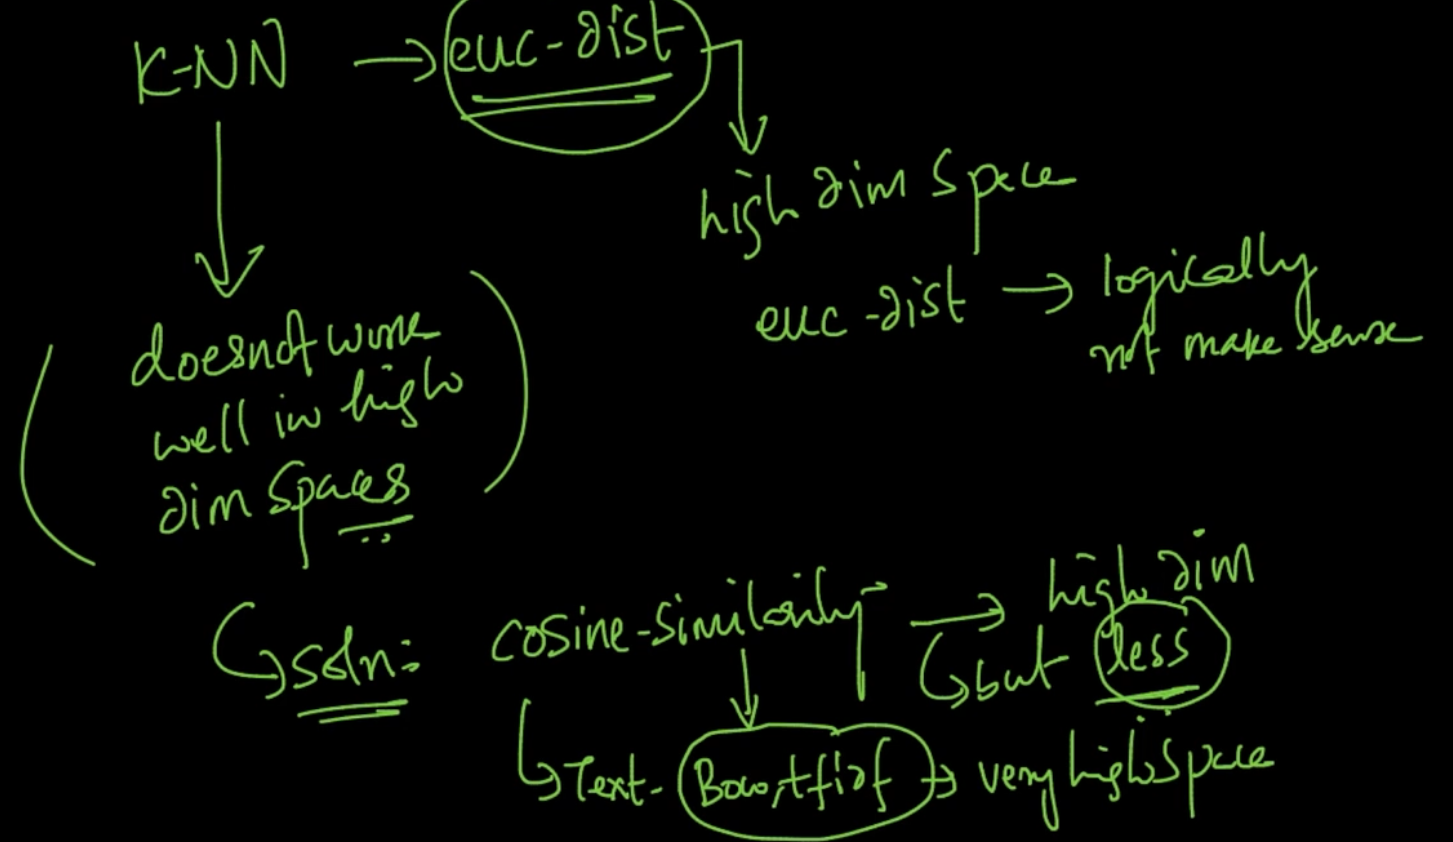 K-NN → euc-dist
high dim space
euc-dist → logically
not make sense
doesnot work
well in high
dim spaces
soln: cosine-similarity → high dim
but less
Text- Bow, tfidf → very high space